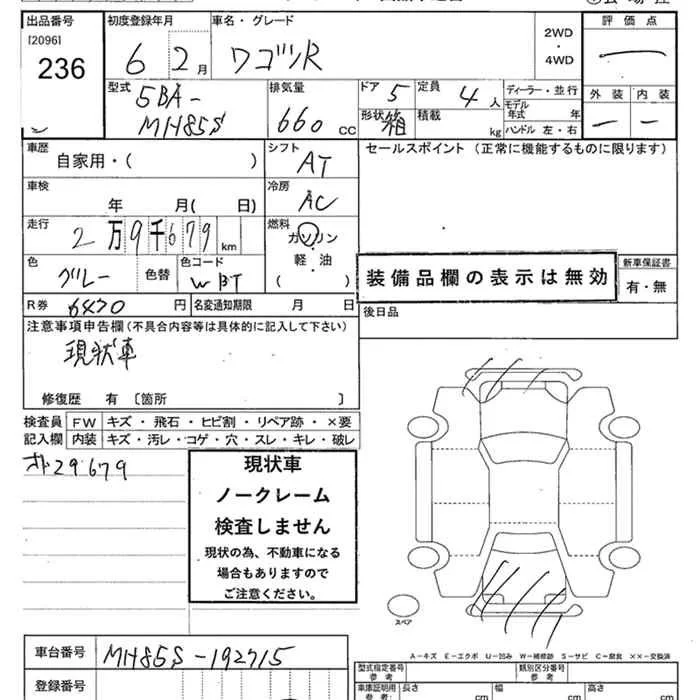 出品番号 初度登録年月 車名・グレード 評価点
[2096]
236 6 2月 ワゴンR 2WD ・ 4WD
型式 5BA-MH85S 排気量 660 CC ドア 5 定員 4人 ディーラー・並行 外装 内装
形状 箱 積載 kg モデル年式 年
ハンドル 左・右
車歴 自家用・( ) シフト AT セールスポイント(正常に機能するものに限ります)
車検 年 月( 日) 冷房 AC
走行 2万9千679 km 燃料 ガソリン
軽・油
( )
色 グレー 色替 色コード WBT 装備品欄の表示は無効 新車保証書
有・無
R券 6420 円 名変通知期限 月 日 後日品
注意事項申告欄(不具合内容等は具体的に記入して下さい)
現状車
修復歴 有 〔箇所 〕
検査員 FW キズ・飛石・ヒビ割・リペア跡・×要
記入欄 内装 キズ・汚レ・コゲ・穴・スレ・キレ・破レ
29679
現状車
ノークレーム
検査しません
現状の為、不動車になる
場合もありますので
ご注意ください。
スペア
A-キズ E-エクボ U-凹み W-補修跡 S-サビ C-腐食 ××-交換済
車台番号 MH85S-192715
型式指定番号 参考 類別区分番号 参考
登録番号 車庫証明用 参考: 長さ cm 幅 cm 高さ cm